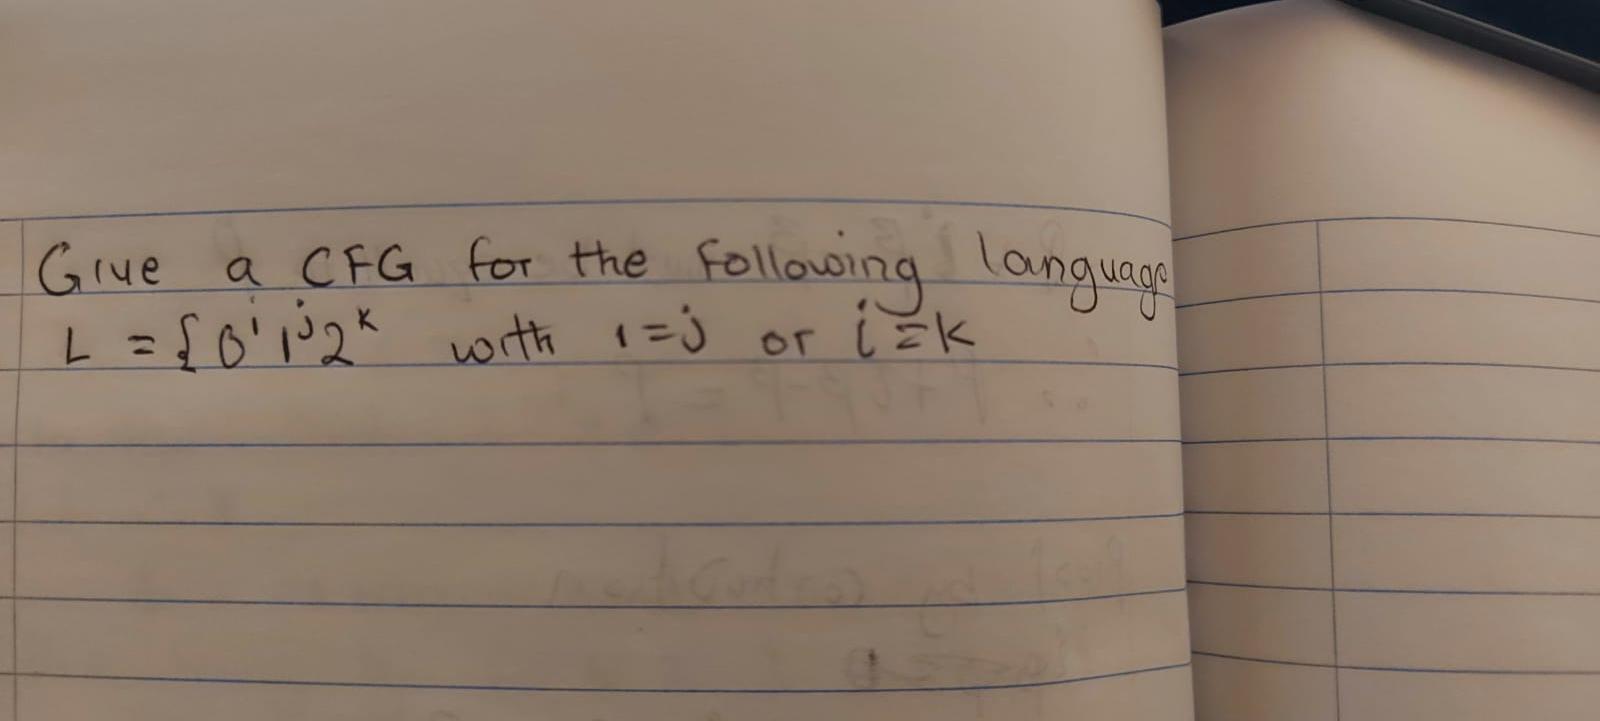 Give a CFG for the following language
L = {0ⁱ 1ʲ 2ᵏ with i=j or i=k